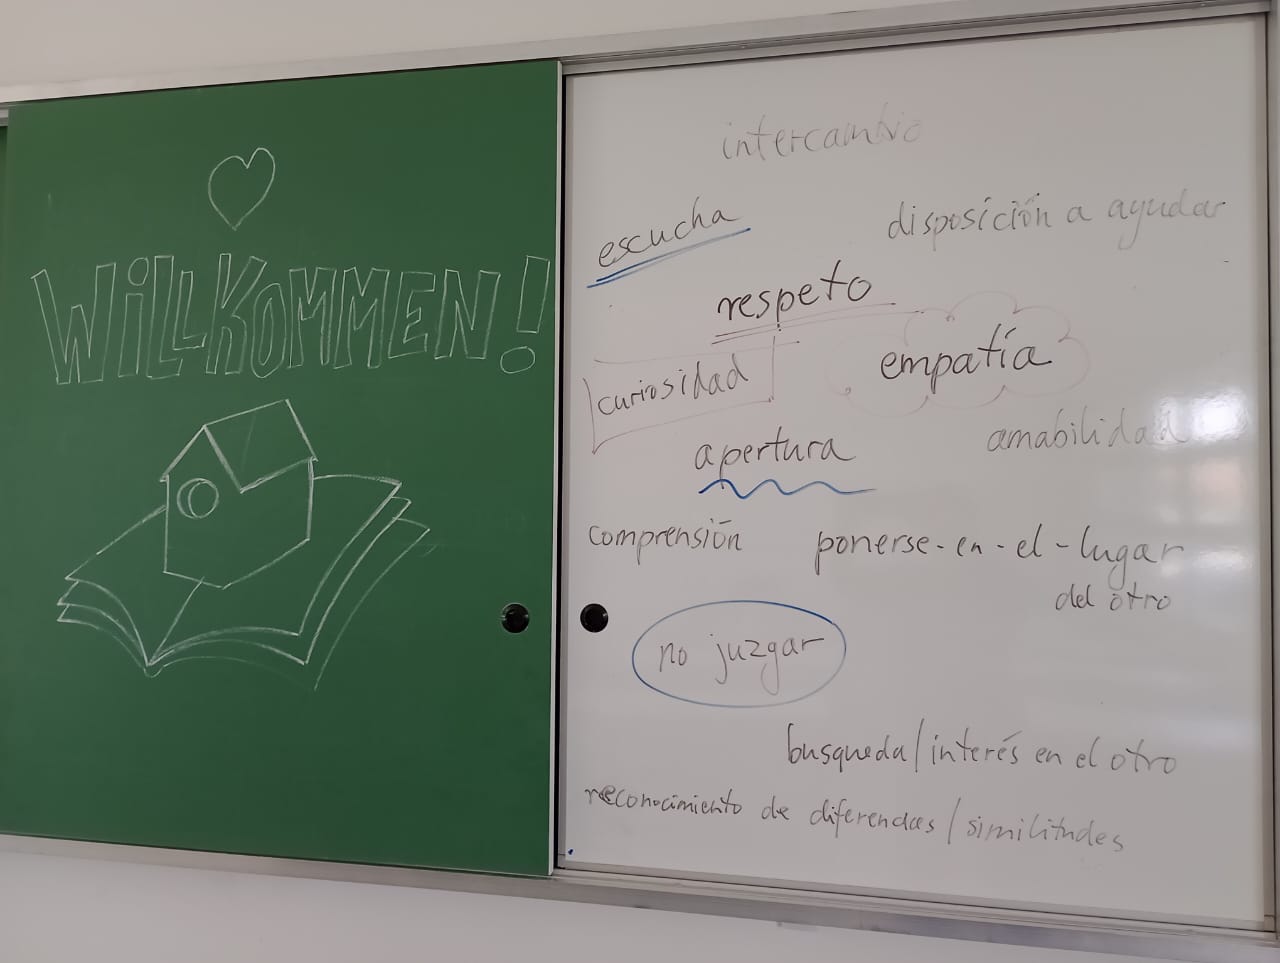 WiLLKOMMEN!
intercambio
escucha
disposición a ayudar
respeto
empatía
curiosidad
amabilidad
apertura
comprensión
ponerse-en-el-lugar
del otro
no juzgar
busqueda/interés en el otro
reconocimiento de diferencias/similitudes